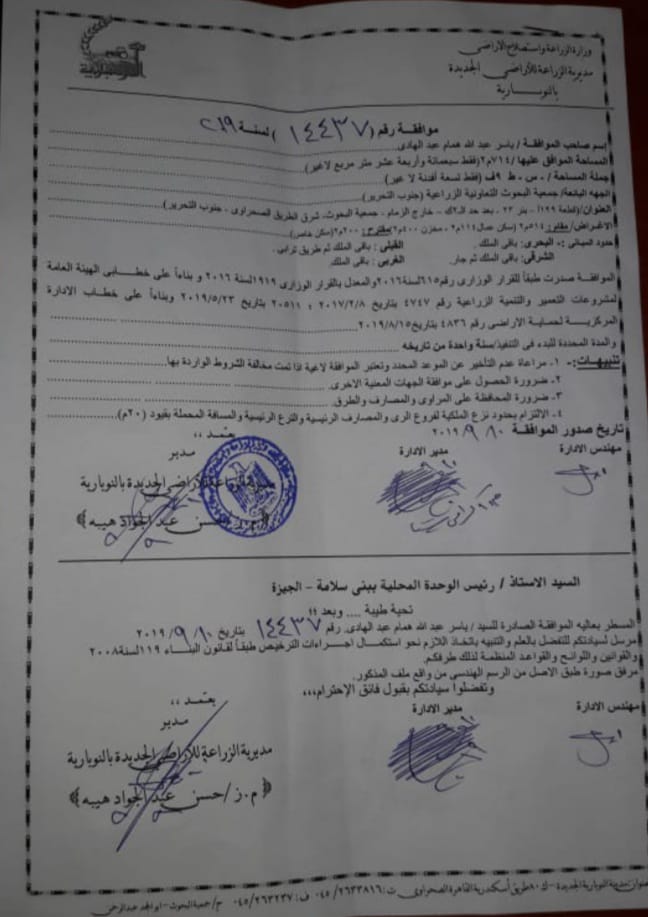 وزارة الزراعة واستصلاح الاراضى
مديرية الزراعة للأراضى الجديدة
بالنوبارية
موافقة رقم ( ١٤٤٣٧ ) لسنة ٢٠١٩
إسم صاحب الموافقة / ياسر عبد الله همام عبد الهادى
المساحة الموافق عليها / ٧١٤م٢ (فقط سبعمائة وأربعة عشر متر مربع لاغير)
جملة المساحة / ٠ س ٠ ط ٩ف (فقط تسعة أفدنة لا غير)
الجهه البائعة / جمعية البحوث التعاونية الزراعية (جنوب التحرير)
العنوان/ (قطعة ١٢٩ - بئر ٢٣ - بعد حد الـ٢ك - خارج الزمام - جمعية البحوث- شرق الطريق الصحراوى - جنوب التحرير)
الاغراض/ مقام: ٥١٤م٢ (سكن عمال ١١٤م٢ - مخزن ٤٠٠م٢) مقترح: ٢٠٠م٢ (سكن خاص)
حدود المبانى :- البحرى: باقى الملك . القبلى : باقى الملك ثم طريق ترابى .
الشرقى: باقى الملك ثم جار. الغربى : باقى الملك.
الموافقة صدرت طبقاً للقرار الوزارى رقم٦١٥لسنة٢٠١٦ والمعدل بالقرار الوزارى ١٩١٩لسنة ٢٠١٦ و بناءاً على خطـــابى الهيئة العامة
لمشروعات التعمير والتنمية الزراعية رقم ٤٧٤٧ بتاريخ ٢٠١٧/٢/٨ ، ٢٠٥١١ بتاريخ ٢٠١٩/٥/٢٣ وبناءاً على خطاب الادارة
المركزية لحماية الاراضى رقم ٤٨٣٦ بتاريخ٢٠١٩/٨/١٥
والمدة المحددة للبدء فى التنفيذ/سنة واحدة من تاريخه
تنبيهات:- ١- مراعاة عدم التأخير عن الموعد المحدد وتعتبر الموافقة لاغية اذا تمت مخالفة الشروط الواردة بها.
٢- ضرورة الحصول على موافقة الجهات المعنية الاخرى.
٣- ضرورة المحافظة على المراوى والمصارف والطرق.
٤- الالتزام بحدود نزع الملكية لفروع الرى والمصارف الرئيسية والترع الرئيسية والمسافة المحملة بقيود (٢٠م)
تاريخ صدور الموافقة ١٠ / ٩ / ٢٠١٩
يعتمد ،،
مهندس الادارة مدير الادارة مدير
مديرية الزراعة للأراضى الجديدة بالنوبارية
( م.ز/ حسن عبد الجواد هيبه )
السيد الاستاذ / رئيس الوحدة المحلية ببنى سلامة - الجيزة
تحية طيبة .... وبعد !!
المسطر بعاليه الموافقة الصادرة للسيد / ياسر عبد الله همام عبد الهادى. رقم ١٤٤٣٧ بتاريخ ١٠ / ٩ / ٢٠١٩
مرسل لسيادتكم للتفضل بالعلم والتنبيه باتخاذ اللازم نحو استكمال اجراءات الترخيص طبقاً لقانون البناء ١١٩لسنة٢٠٠٨
والقوانين واللوائح والقواعد المنظمة لذلك طرفكم.
مرفق صورة طبق الاصل من الرسم الهندسى من واقع ملف المذكور.
وتفضلوا سيادتكم بقبول فائق الإحترام،،،
يعتمد ،،
مهندس الادارة مدير الادارة مدير
مديرية الزراعة للأراضى الجديدة بالنوبارية
( م.ز/ حسن عبد الجواد هيبه )
عنوان مديرية النوبارية الجديدة - ك٨٠ طريق أسكندرية القاهرة الصحراوى ت: ٠٤٥/٢٦٣٣٨١٦ ف: ٠٤٥/٢٦٣٢٣٧ م/جمعية البحوث - ابوالمجد عبدالرحمن